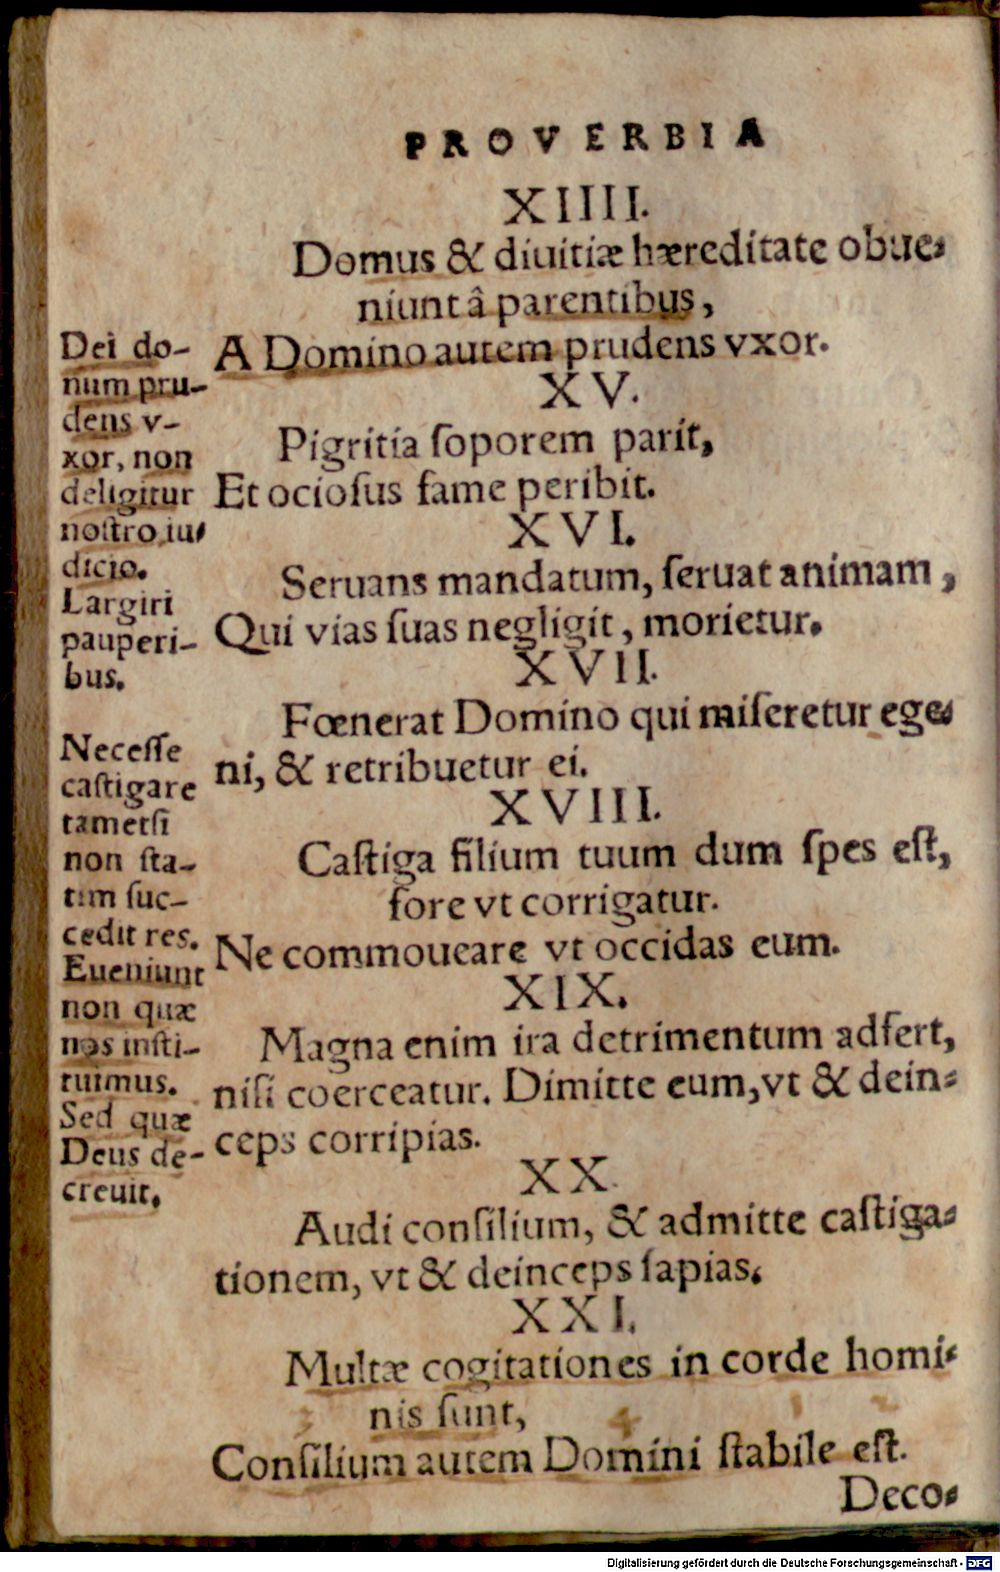 PROVERBIA
XIIII.
Domus & diuitiæ hæreditate obue-
niunt â parentibus,
A Domino autem prudens vxor.
XV.
Pigritia ſoporem parit,
Et ocioſus fame peribit.
XVI.
Seruans mandatum, ſeruat animam,
Qui vias ſuas negligit, morietur.
XVII.
Fœnerat Domino qui miſeretur ege-
ni, & retribuetur ei.
XVIII.
Caſtiga filium tuum dum ſpes eſt,
fore vt corrigatur.
Ne commoueare vt occidas eum.
XIX.
Magna enim ira detrimentum adfert,
niſi coerceatur. Dimitte eum, vt & dein-
ceps corripias.
XX.
Audi conſilium, & admitte caſtiga-
tionem, vt & deinceps ſapias.
XXI.
Multæ cogitationes in corde homi-
nis ſunt,
Conſilium autem Domini ſtabile eſt.
Deco-
Dei do-
num pru-
dens v-
xor, non
deligitur
noſtro iu-
dicio.
Largiri
pauperi-
bus.
Neceſſe
caſtigare
tametſi
non ſta-
tim ſuc-
cedit res.
Eueniunt
non quæ
nos inſti-
tuimus.
Sed quæ
Deus de-
creuit.
Digitalisierung gefördert durch die Deutsche Forschungsgemeinschaft - DFG